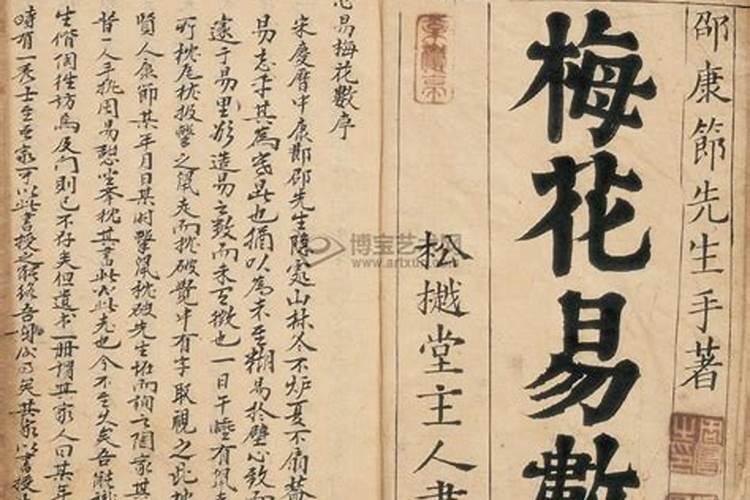 邵康節先生手著
梅花易數
松樾堂主人書
心易梅花數序
宋慶曆中康節邵先生隱處山林冬不炉夏不扇蓋
易志乎其為寒暑也猶以為未至糊易於壁心致而
邃于易里欲造易之數而未有徵也一日午睡有鼠走
所枕瓦枕投擊之鼠走而枕破覺中有字取視之此枕
賢人康節某年月日某時擊鼠枕破先生恠而詢之陶家其
昔一人手執周易憩坐奉枕其書此必此老也今不至久矣吾能識
生偕個往訪焉及門則已不存矣但遺书一冊謂其家人曰某年
時有一秀士至吾家可以此書授之能終吾身矣其家以書授
博宝艺术网
www.artxun.com